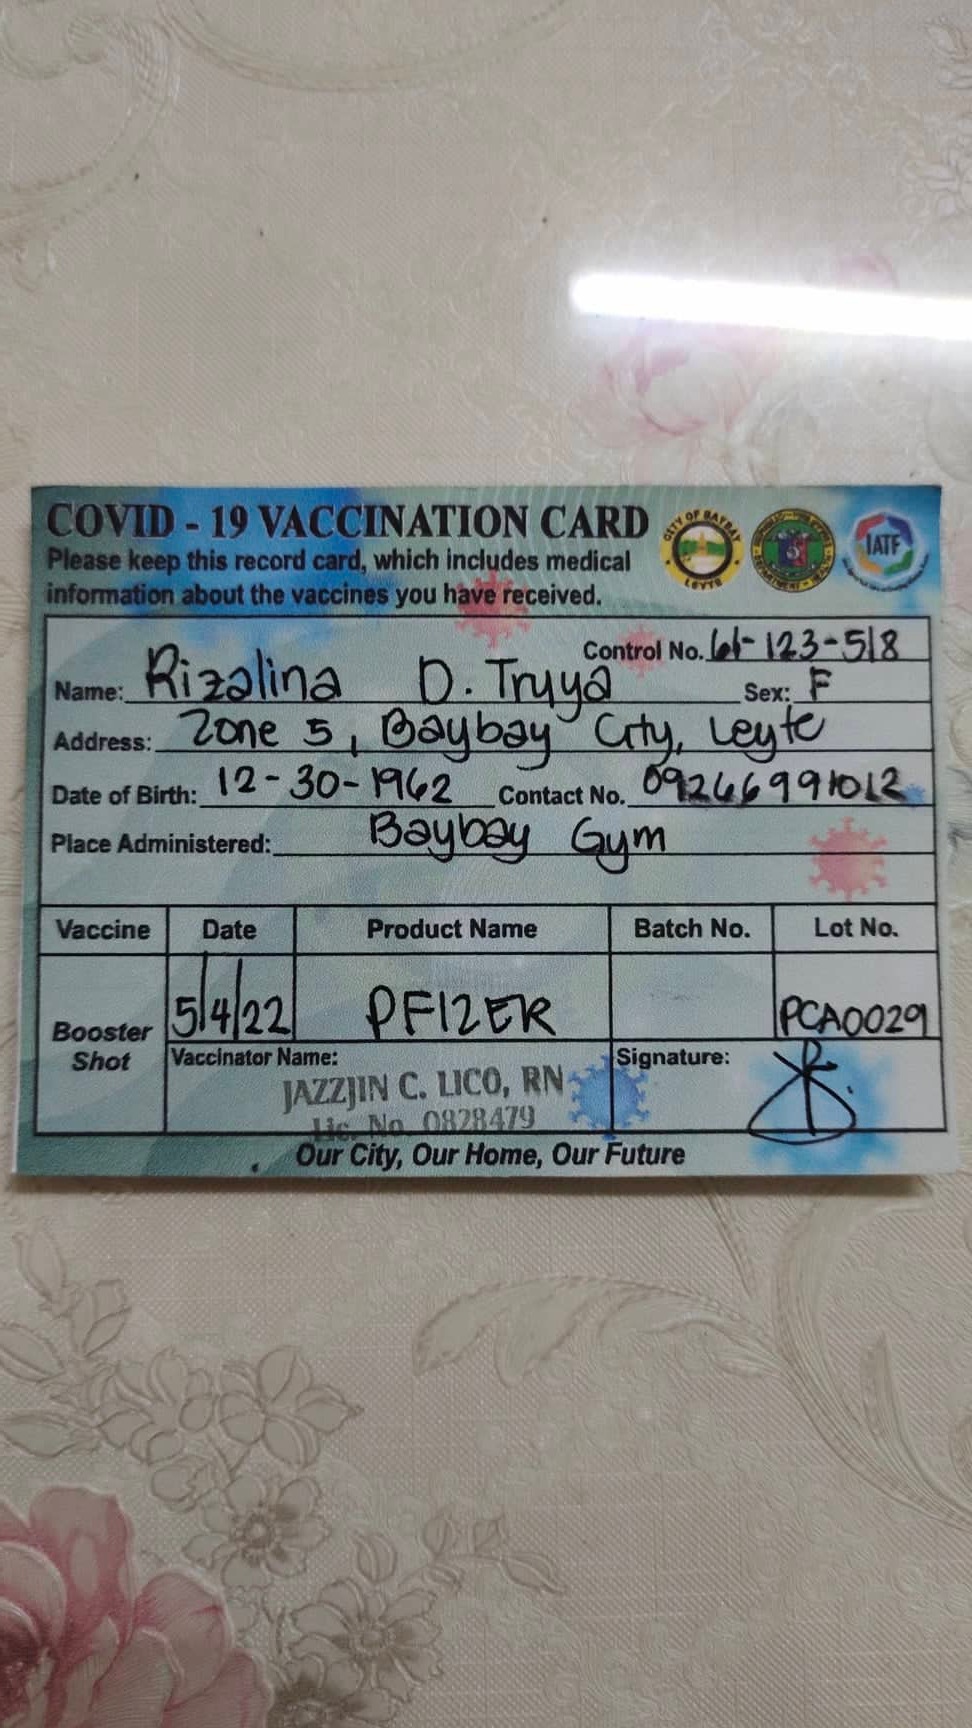 COVID - 19 VACCINATION CARD
Please keep this record card, which includes medical
information about the vaccines you have received.
CITY OF BAYBAY
LEYTE
IATF
Control No. 61-123-518
Name: Rizalina D. Truya Sex: F
Address: Zone 5, Baybay City, Leyte
Date of Birth: 12-30-1962 Contact No. 09266991012
Place Administered: Baybay Gym
Vaccine Date Product Name Batch No. Lot No.
Booster Shot 5/4/22 PFIZER PCA0029
Vaccinator Name: Signature:
JAZZJIN C. LICO, RN
Lic. No. 0828479
Our City, Our Home, Our Future